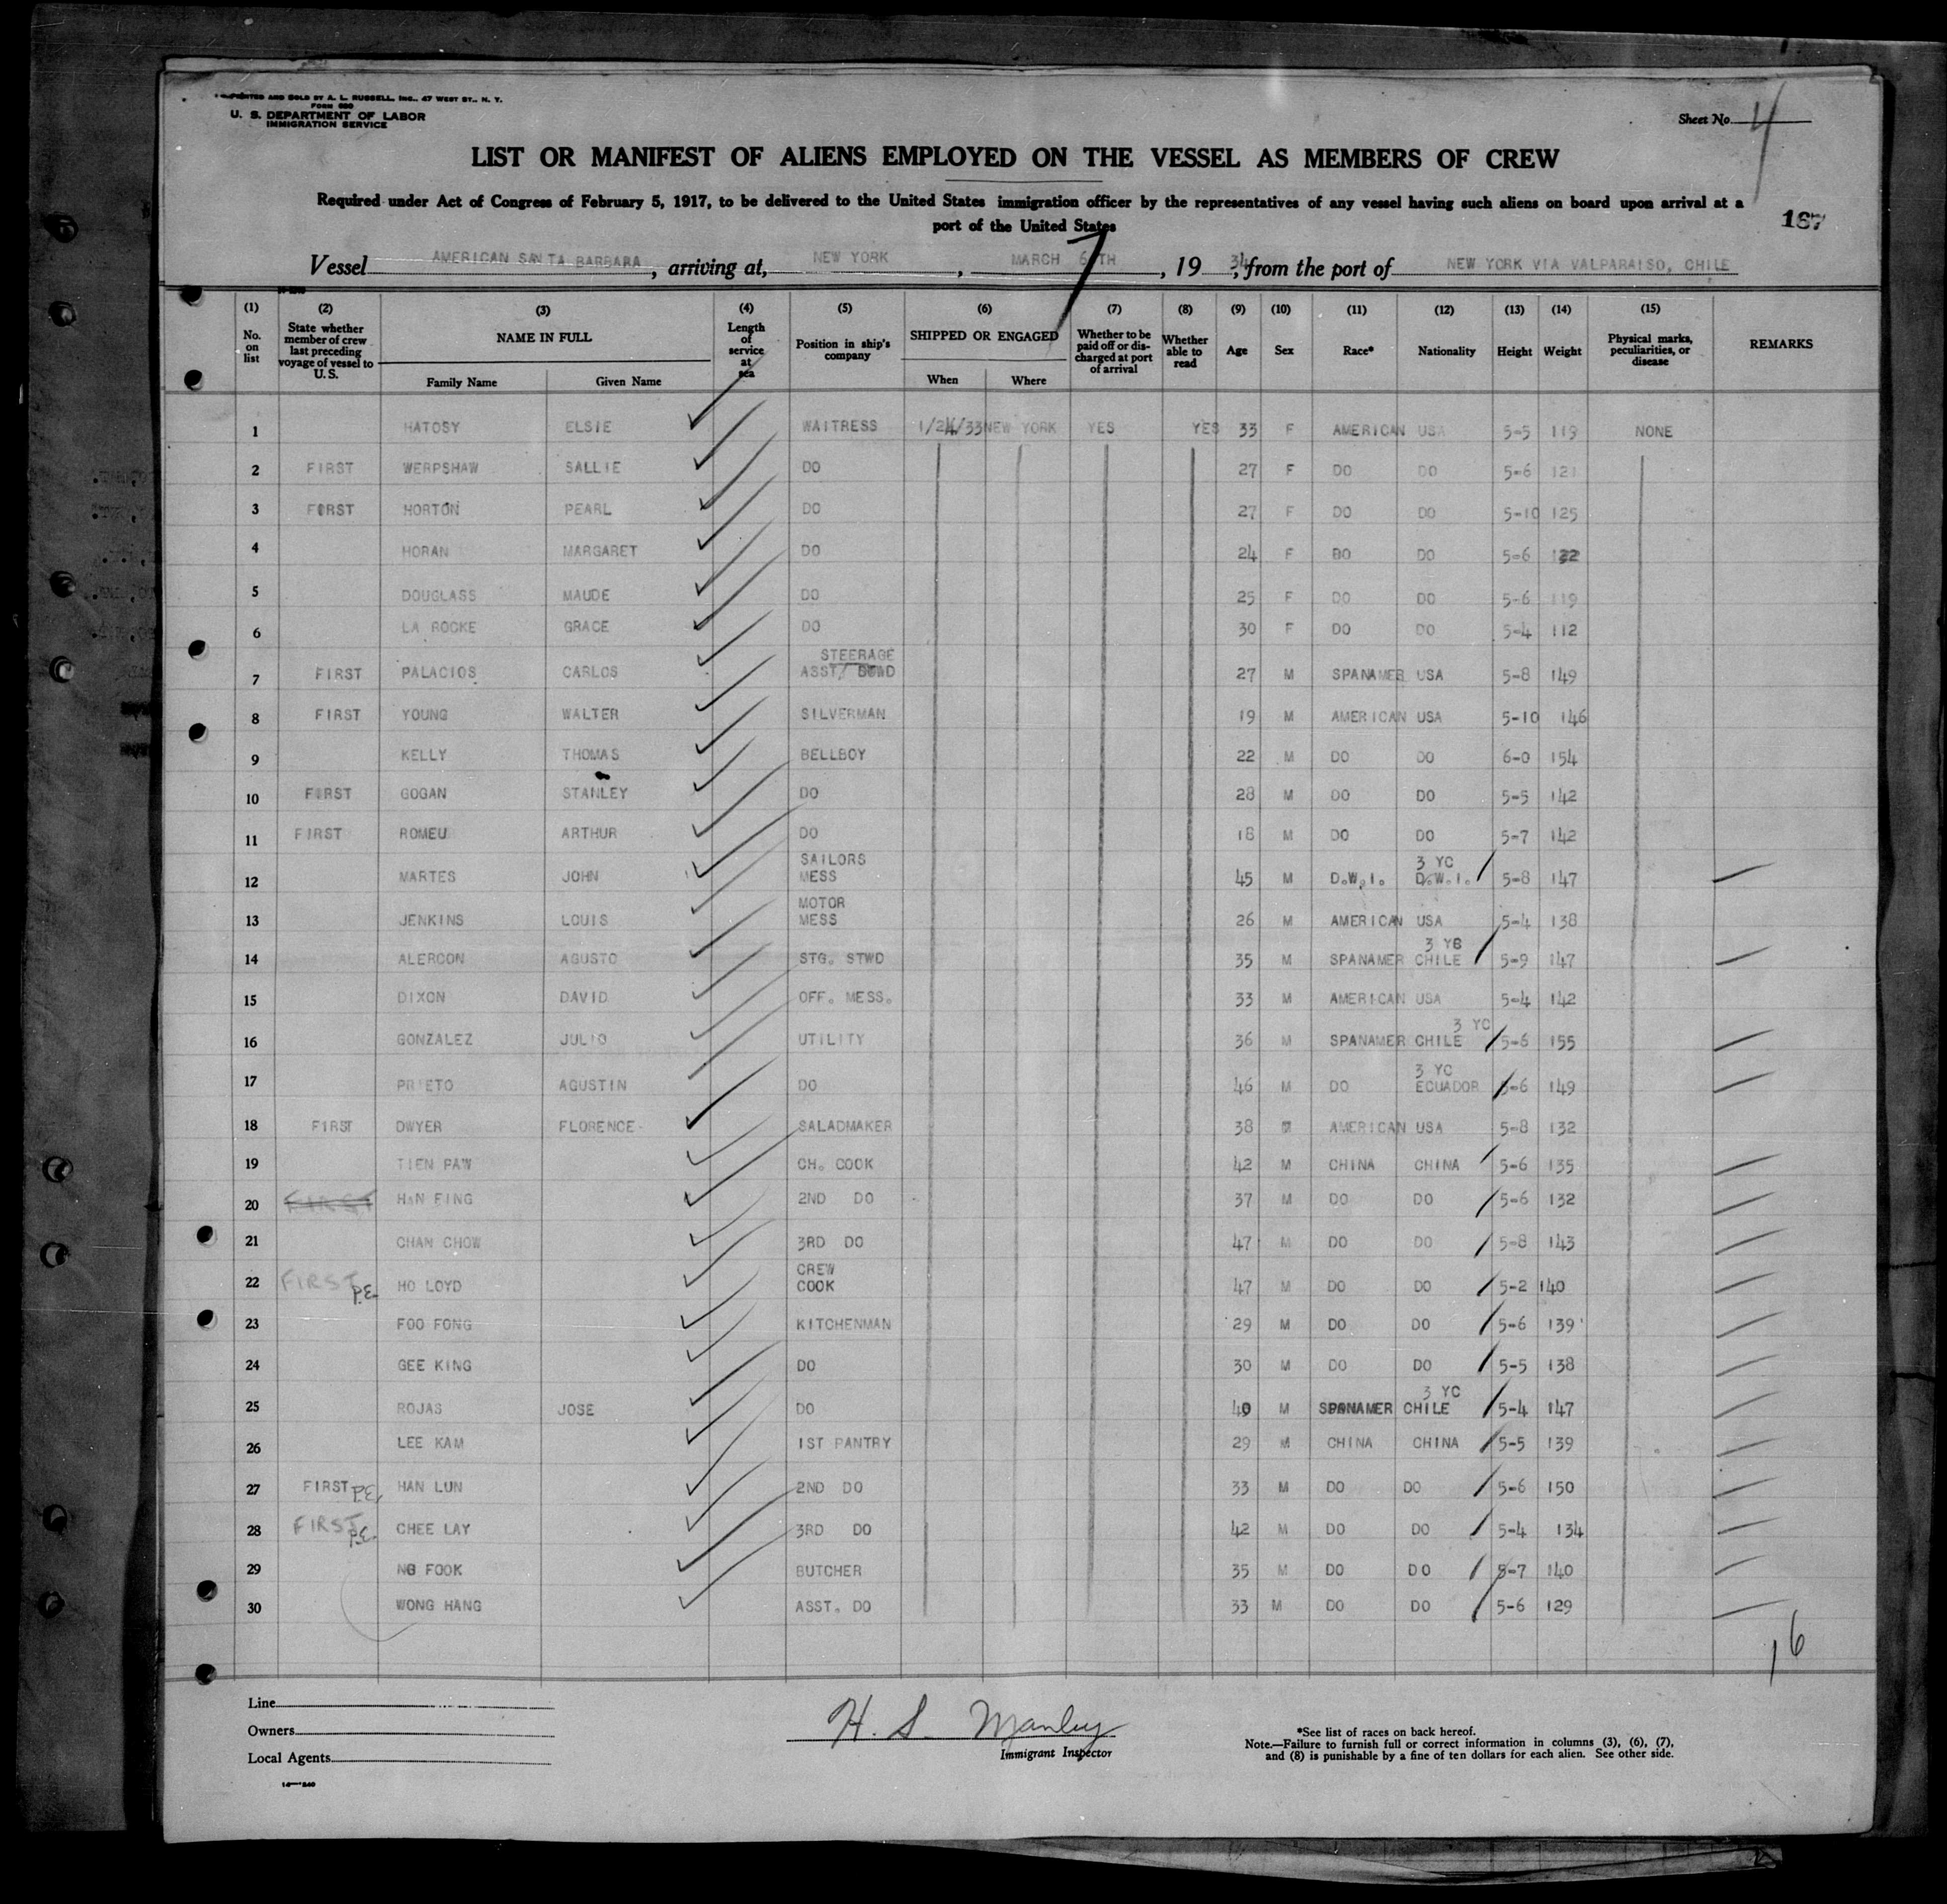 PRINTED AND SOLD BY A. L. RUSSELL, INC., 47 WEST ST., N. Y.
FORM 680
U. S. DEPARTMENT OF LABOR
IMMIGRATION SERVICE
Sheet No. 4
LIST OR MANIFEST OF ALIENS EMPLOYED ON THE VESSEL AS MEMBERS OF CREW
Required under Act of Congress of February 5, 1917, to be delivered to the United States immigration officer by the representatives of any vessel having such aliens on board upon arrival at a
port of the United States
167
Vessel AMERICAN SANTA BARBARA, arriving at, NEW YORK, MARCH 6TH, 19 34, from the port of NEW YORK VIA VALPARAISO, CHILE
(1) (2) (3) (4) (5) (6) (7) (8) (9) (10) (11) (12) (13) (14) (15)
No. on list State whether member of crew last preceding voyage of vessel to U. S. NAME IN FULL Family Name Given Name Length of service at sea Position in ship's company SHIPPED OR ENGAGED When Where Whether to be paid off or discharged at port of arrival Whether able to read Age Sex Race* Nationality Height Weight Physical marks, peculiarities, or disease REMARKS
1 HATOSY ELSIE WAITRESS 1/24/33 NEW YORK YES YES 33 F AMERICAN USA 5-5 119 NONE
2 FIRST WERPSHAW SALLIE DO 27 F DO DO 5-6 121
3 FIRST HORTON PEARL DO 27 F DO DO 5-10 125
4 HORAN MARGARET DO 24 F DO DO 5-6 122
5 DOUGLASS MAUDE DO 25 F DO DO 5-6 119
6 LA ROCKE GRACE DO 30 F DO DO 5-4 112
STEERAGE
7 FIRST PALACIOS CARLOS ASST/ STWD 27 M SPANAMER USA 5-8 149
8 FIRST YOUNG WALTER SILVERMAN 19 M AMERICAN USA 5-10 146
9 KELLY THOMAS BELLBOY 22 M DO DO 6-0 154
10 FIRST GOGAN STANLEY DO 28 M DO DO 5-5 142
11 FIRST ROMEU ARTHUR DO 18 M DO DO 5-7 142
SAILORS 3 YC
12 MARTES JOHN MESS 45 M D.W.I. D.W.I. 5-8 147
MOTOR
13 JENKINS LOUIS MESS 26 M AMERICAN USA 5-4 138
3 YB
14 ALERCON AGUSTO STG. STWD 35 M SPANAMER CHILE 5-9 147
15 DIXON DAVID OFF. MESS. 33 M AMERICAN USA 5-4 142
3 YC
16 GONZALEZ JULIO UTILITY 36 M SPANAMER CHILE 5-6 155
3 YC
17 PRIETO AGUSTIN DO 46 M DO ECUADOR 5-6 149
18 FIRST DWYER FLORENCE SALADMAKER 38 M AMERICAN USA 5-8 132
19 TIEN PAW CH. COOK 42 M CHINA CHINA 5-6 135
20 FIRST HAN FING 2ND DO 37 M DO DO 5-6 132
21 CHAN CHOW 3RD DO 47 M DO DO 5-8 143
CREW
22 FIRST P.E. HO LOYD COOK 47 M DO DO 5-2 140
23 FOO FONG KITCHENMAN 29 M DO DO 5-6 139
24 GEE KING DO 30 M DO DO 5-5 138
3 YC
25 ROJAS JOSE DO 40 M SPANAMER CHILE 5-4 147
26 LEE KAM 1ST PANTRY 29 M CHINA CHINA 5-5 139
27 FIRST P.E. HAN LUN 2ND DO 33 M DO DO 5-6 150
28 FIRST P.E. CHEE LAY 3RD DO 42 M DO DO 5-4 134
29 NG FOOK BUTCHER 35 M DO DO 5-7 140
30 WONG HANG ASST. DO 33 M DO DO 5-6 129
16
Line
Owners
Local Agents
H. S. Manley
Immigrant Inspector
*See list of races on back hereof.
Note.—Failure to furnish full or correct information in columns (3), (6), (7),
and (8) is punishable by a fine of ten dollars for each alien. See other side.